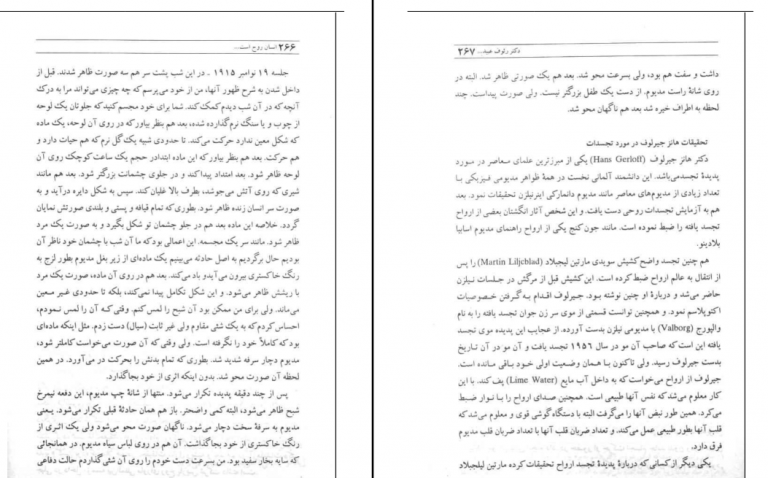 ۲۶۶ انسان روح است...
جلسه ۱۹ نوامبر ۱۹۱۵ ـ در این شب پشت سر هم سه صورت ظاهر شدند. قبل از
داخل شدن به شرح ظهور آنها، من از خود می‌پرسم که چه چیزی می‌تواند مرا به درک
آنچه که در آن شب دیدم کمک کند. شما برای خود مجسم کنید که جلوتان یک لوحه
از چوب و یا سنگ نرم گذارده شده، بعد هم بنظر بیاور که در روی آن لوحه، یک ماده
که شکل معین ندارد حرکت می‌کند. تا حدودی شبیه یک گل نرم که هم حیات دارد و
هم حرکت. بعد هم بنظر بیاور که این ماده ابتدا در حجم یک ساعت کوچک روی آن
لوحه ظاهر شود. بعد امتداد پیدا کند و در جلوی چشمانت بزرگتر شود. بعد هم مانند
شیری که روی آتش می‌جوشد، بطرف بالا غلیان کند. سپس به شکل دایره درآید و به
صورت سر انسان زنده ظاهر شود. بطوری که تمام قیافه و پستی و بلندی صورتش نمایان
گردد. خلاصه این ماده بعد هم در جلو چشمان تو شکل بگیرد و به صورت یک مرد
ظاهر شود. مانند سر یک مجسمه. این اعمالی بود که ما آن شب با چشمان خود ناظر آن
بودیم حال برگردیم به اصل حادثه می‌بینیم یک ماده‌ای از زیر بغل مدیوم بطور لزج به
رنگ خاکستری بیرون می‌آید و باد می‌کند. بعد هم در روی آن ماده، صورت یک مرد
با ریشش ظاهر می‌شود. و این شکل تکامل پیدا نمی‌کند، بلکه تا حدودی غیر معین
می‌ماند. ولی برای من ممکن بود آن شبح را لمس کنم. وقتی که آن را لمس نمودم،
احساس کردم که به یک شئی مقاوم ولی غیر ثابت (سیال) دست زدم. مثل اینکه ماده‌ای
بود که کاملاً خود را نگرفته است. ولی وقتی که آن صورت می‌خواست کاملتر شود،
مدیوم دچار سرفه شدید شد. بطوری که تمام بدنش را بحرکت در می‌آورد. در همین
لحظه آن صورت محو شد. بدون اینکه اثری از خود بجا گذارد.
پس از چند دقیقه پدیده تکرار می‌شود. منتها از شانهٔ چپ مدیوم، این دفعه نیمرخ
شبح ظاهر می‌شود، البته کمی واضحتر. باز هم همان حادثهٔ قبلی تکرار می‌شود. یعنی
مدیوم به سرفهٔ سخت دچار می‌شود. ناگهان صورت محو می‌شود ولی یک اثری از
رنگ خاکستری از خود بجا گذاشت. آن هم در روی لباس سیاه مدیوم. در همانجائی
که سایه بخار سفید بود. من بسرعت دست خودم را روی آن شئی گذاردم حالت دفاعی
دکتر رئوف عبید... ۲۶۷
داشت و سفت هم بود، ولی بسرعت محو شد. بعد هم یک صورتی ظاهر شد. البته در
روی شانهٔ راست مدیوم. از دست یک طفل بزرگتر نیست. ولی صورت پیداست. چند
لحظه به اطراف خیره شد بعد هم ناگهان محو شد.
تحقیقات هانز جیرلوف در مورد تجسدات
دکتر هانز جیرلوف (Hans Gerloff) یکی از مبرزترین علمای معاصر در مورد
پدیدهٔ تجسد می‌باشد. این دانشمند آلمانی نخست در همهٔ ظواهر مدیومی فیزیکی با
تعداد زیادی از مدیوم‌های معاصر مانند مدیوم دانمارکی اینرنیلزن تحقیقات نمود. بعد
هم به آزمایش تجسدات روحی دست یافت. و این شخص آثار انگشتان بعضی از ارواح
تجسد یافته را ضبط نموده است. مانند جون کنج یکی از ارواح راهنمای مدیوم اسابیا
بلادینو.
هم چنین تجسد واضح کشیش سویدی مارتین لیجبلاد (Martin Liljeblad) را پس
از انتقال به عالم ارواح ضبط کرده است. این کشیش قبل از مرگش در جلسات نیلزن
حاضر می‌شد و دربارهٔ او چنین نوشته بود. جیرلوف اقدام به گرفتن خصوصیات
اکتوپلاسم نمود. و همچنین توانست قسمتی از موی سر زن جوان تجسد یافته را به نام
والبورج (Valborg) با مدیومی نیلزن بدست آورده. از عجایب این پدیده موی تجسد
یافته این است که صاحب آن مو در سال ۱۹۵۶ تجسد یافت و آن مو در آن تاریخ
بدست جیرلوف رسید. ولی تاکنون با همان وضعیت اولی خود باقی مانده است.
جیرلوف از ارواح می‌خواست که به داخل آب مایع (Lime Water) پف کند. با این
کار معلوم می‌شد که نفس آنها طبیعی است. همچنین صدای ارواح را با نوار ضبط
می‌کرد. همین طور نبض آنها را می‌گرفت البته با دستگاه گوشی قوی و معلوم می‌شد که
قلب آنها بطور طبیعی عمل می‌کند. و تعداد ضربان قلب آنها با تعداد ضربان قلب مدیوم
فرق دارد.
یکی دیگر از کسانی که دربارهٔ پدیدهٔ تجسد ارواح تحقیقات کرده مارتین لیلجبلاد